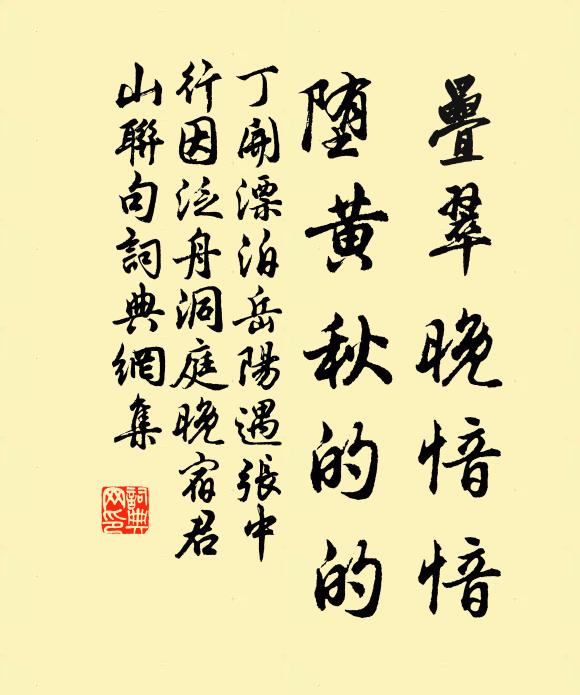 疊翠晚愔愔
堕黄秋的的
丁開漂泊岳陽遇張中
行因泛舟洞庭晚宿君
山聯句詞典網集
詞典
网印